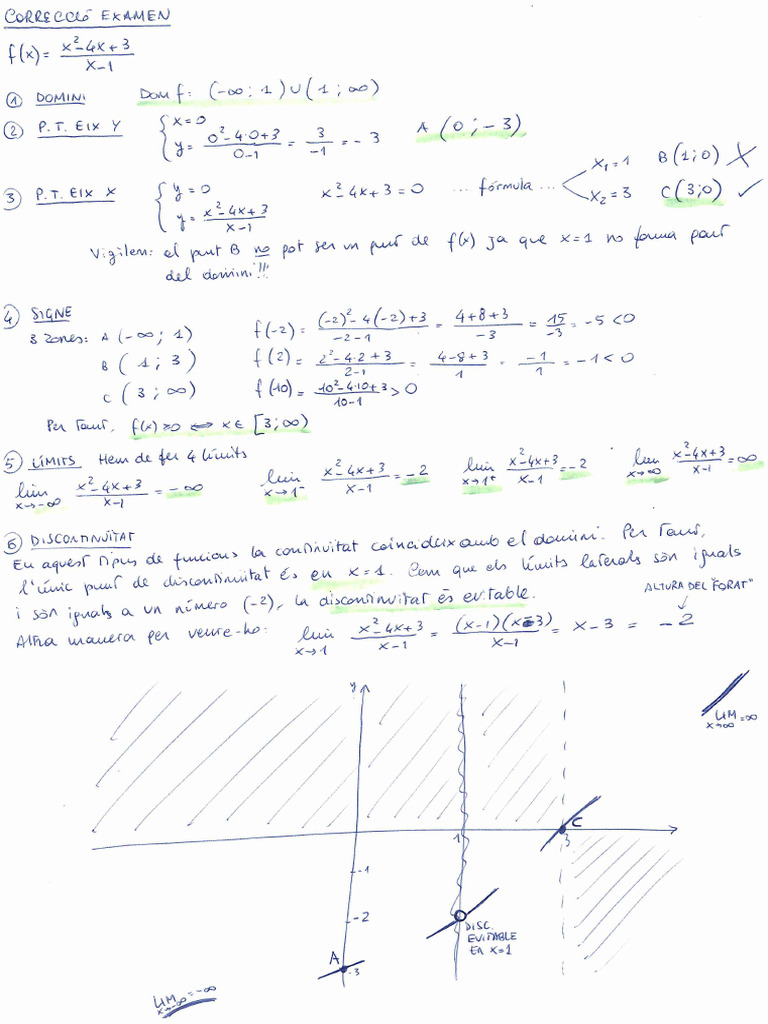 CORRECCIÓ EXAMEN
f(x) = (x²-4x+3)/(x-1)
① DOMINI Dom f: (-∞; 1) ∪ (1; ∞)
② P.T. EIX Y { x=0
y = (0²-4·0+3)/(0-1) = 3/-1 = -3 A (0; -3)
③ P.T. EIX X { y=0
y = (x²-4x+3)/(x-1) x²-4x+3=0 ... fórmula ... x₁=1 B(1;0) ✗
x₂=3 C(3;0) ✓
Vigilem: el punt B no pot ser un punt de f(x) ja que x=1 no forma part
del domini!!!
④ SIGNE
3 zones: A (-∞; 1) f(-2) = ((-2)²-4(-2)+3)/(-2-1) = (4+8+3)/-3 = 15/-3 = -5 < 0
B (1; 3) f(2) = (2²-4·2+3)/(2-1) = (4-8+3)/1 = -1/1 = -1 < 0
C (3; ∞) f(10) = (10²-4·10+3)/(10-1) > 0
Per tant, f(x) ≥ 0 ⟺ x ∈ [3; ∞)
⑤ LÍMITS Hem de fer 4 límits
lim x→-∞ (x²-4x+3)/(x-1) = -∞ lim x→1⁻ (x²-4x+3)/(x-1) = -2 lim x→1⁺ (x²-4x+3)/(x-1) = -2 lim x→∞ (x²-4x+3)/(x-1) = ∞
⑥ DISCONTINUÏTAT
En aquest tipus de funcions la continuïtat coincideix amb el domini. Per tant,
l'únic punt de discontinuïtat és en x=1. Com que els límits laterals són iguals
i són iguals a un número (-2), la discontinuïtat és evitable.
ALTURA DEL "FORAT"
Altra manera per veure-ho: lim x→1 (x²-4x+3)/(x-1) = (x-1)(x-3)/(x-1) = x-3 = -2
y
LIM x→∞ = ∞
C
1
3
-1
-2
DISC.
EVITABLE
EN X=1
A
-3
LIM x→-∞ = -∞